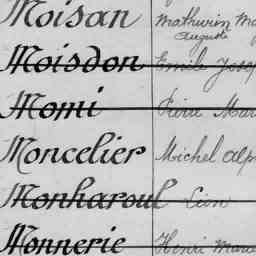 Moisan Mathurin
Auguste
Moisdon Emile Jose
Momi Pierre Mar
Moncelier Michel Alp
Monharoul Léon
Monnerie Henri Marce